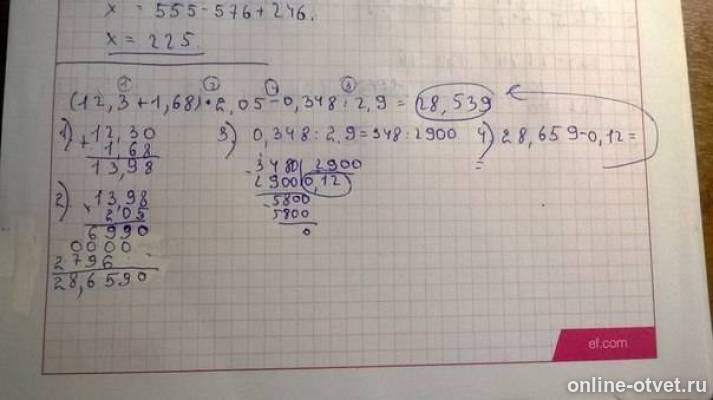 x = 555-576+246.
x = 225.
① ② ④ ③
(12,3+1,68)·2,05-0,348:2,9= 28,539
1) +12,30
1,68
13,98
2) ×13,98
2,05
6990
0000
2796
28,6590
3) 0,348:2,9=348:2900
-3480 2900
2900 0,12
-5800
5800
0
4) 28,659-0,12=
=
ef.com
online-otvet.ru